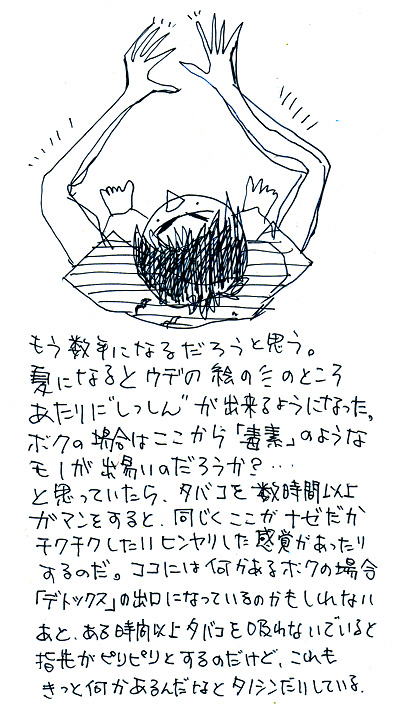 もう数年になるだろうと思う。
夏になるとウデの絵の彡のところ
あたりに"しっしん"が出来るようになった。
ボクの場合はここから「毒素」のような
モノが出易いのだろうか？…
と思っていたら、タバコを数時間以上
ガマンをすると、同じくここがナゼだか
チクチクしたりヒンヤリした感覚があったり
するのだ。ココには何かあるボクの場合
「デトックス」の出口になっているのかもしれない
あと、ある時間以上タバコを吸わないでいると
指先がピリピリとするのだけど、これも
きっと何かあるんだなとタノシンだりしている。